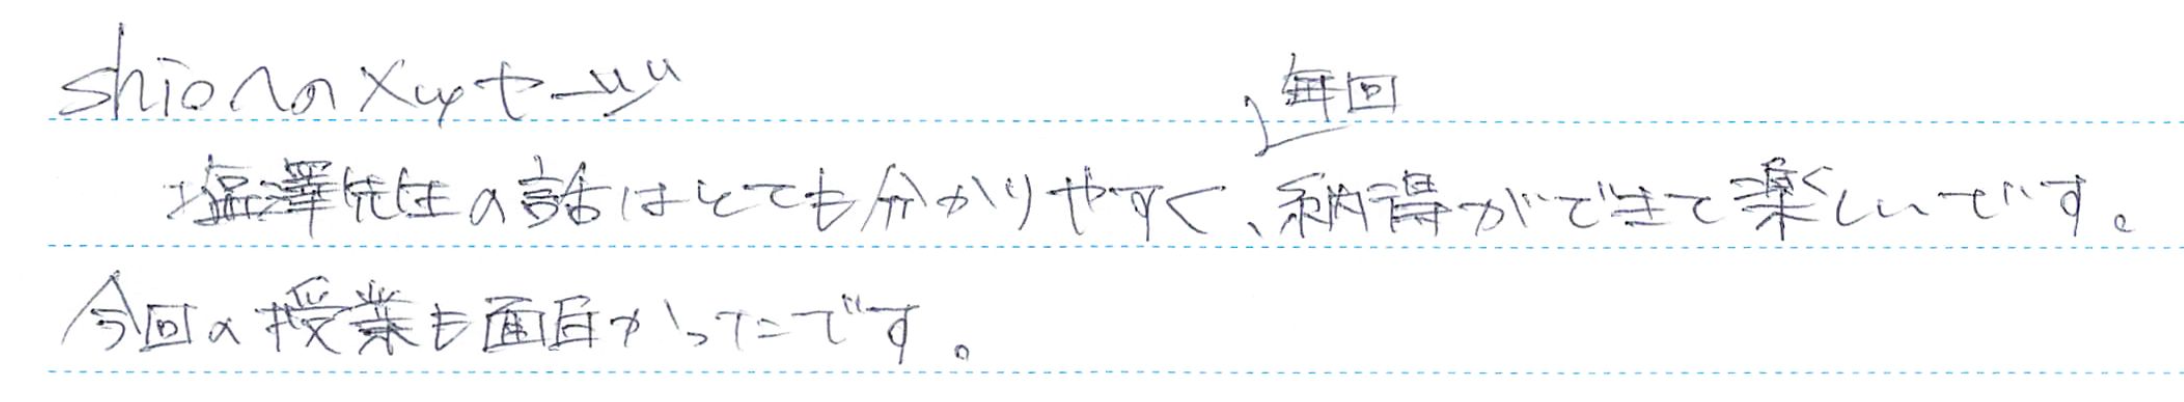 shioへのメッセージ
塩澤先生の話はとても分かりやすく、毎回納得ができて楽しいです。
今回の授業も面白かったです。